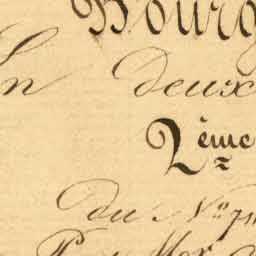 Bourg
En deux
2ème
du No 71